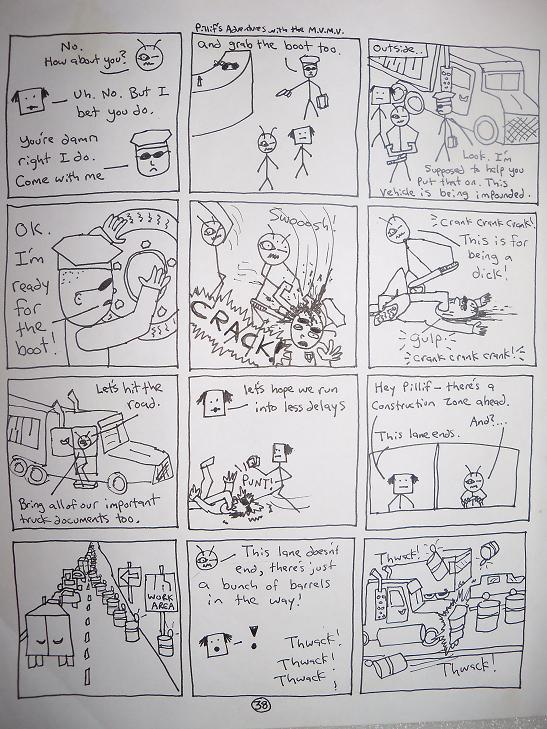 Pillif's Adventures with the M.V.M.V.
No.
How about you?
Uh. No. But I
bet you do.
You're damn
right I do.
Come with me
and grab the boot too.
Outside..
Look. I'm
supposed to help you
put that on. This
vehicle is being impounded.
OK.
I'm
ready
for
the
boot!
Swoosh!
CRACK!
Crank Crank Crank!
This is for
being a
dick!
gulp.
Crank crank crank!
Let's hit the
road.
Bring all of our important
truck documents too.
let's hope we run
into less delays
PUNT!
Hey Pillif- there's a
Construction Zone ahead.
This lane ends.
And?...
!
WORK
AREA
This lane doesn't
end, there's just
a bunch of barrels
in the way!
!
Thwack!
Thwack!
Thwack!
Thwack!
Thwack!
38